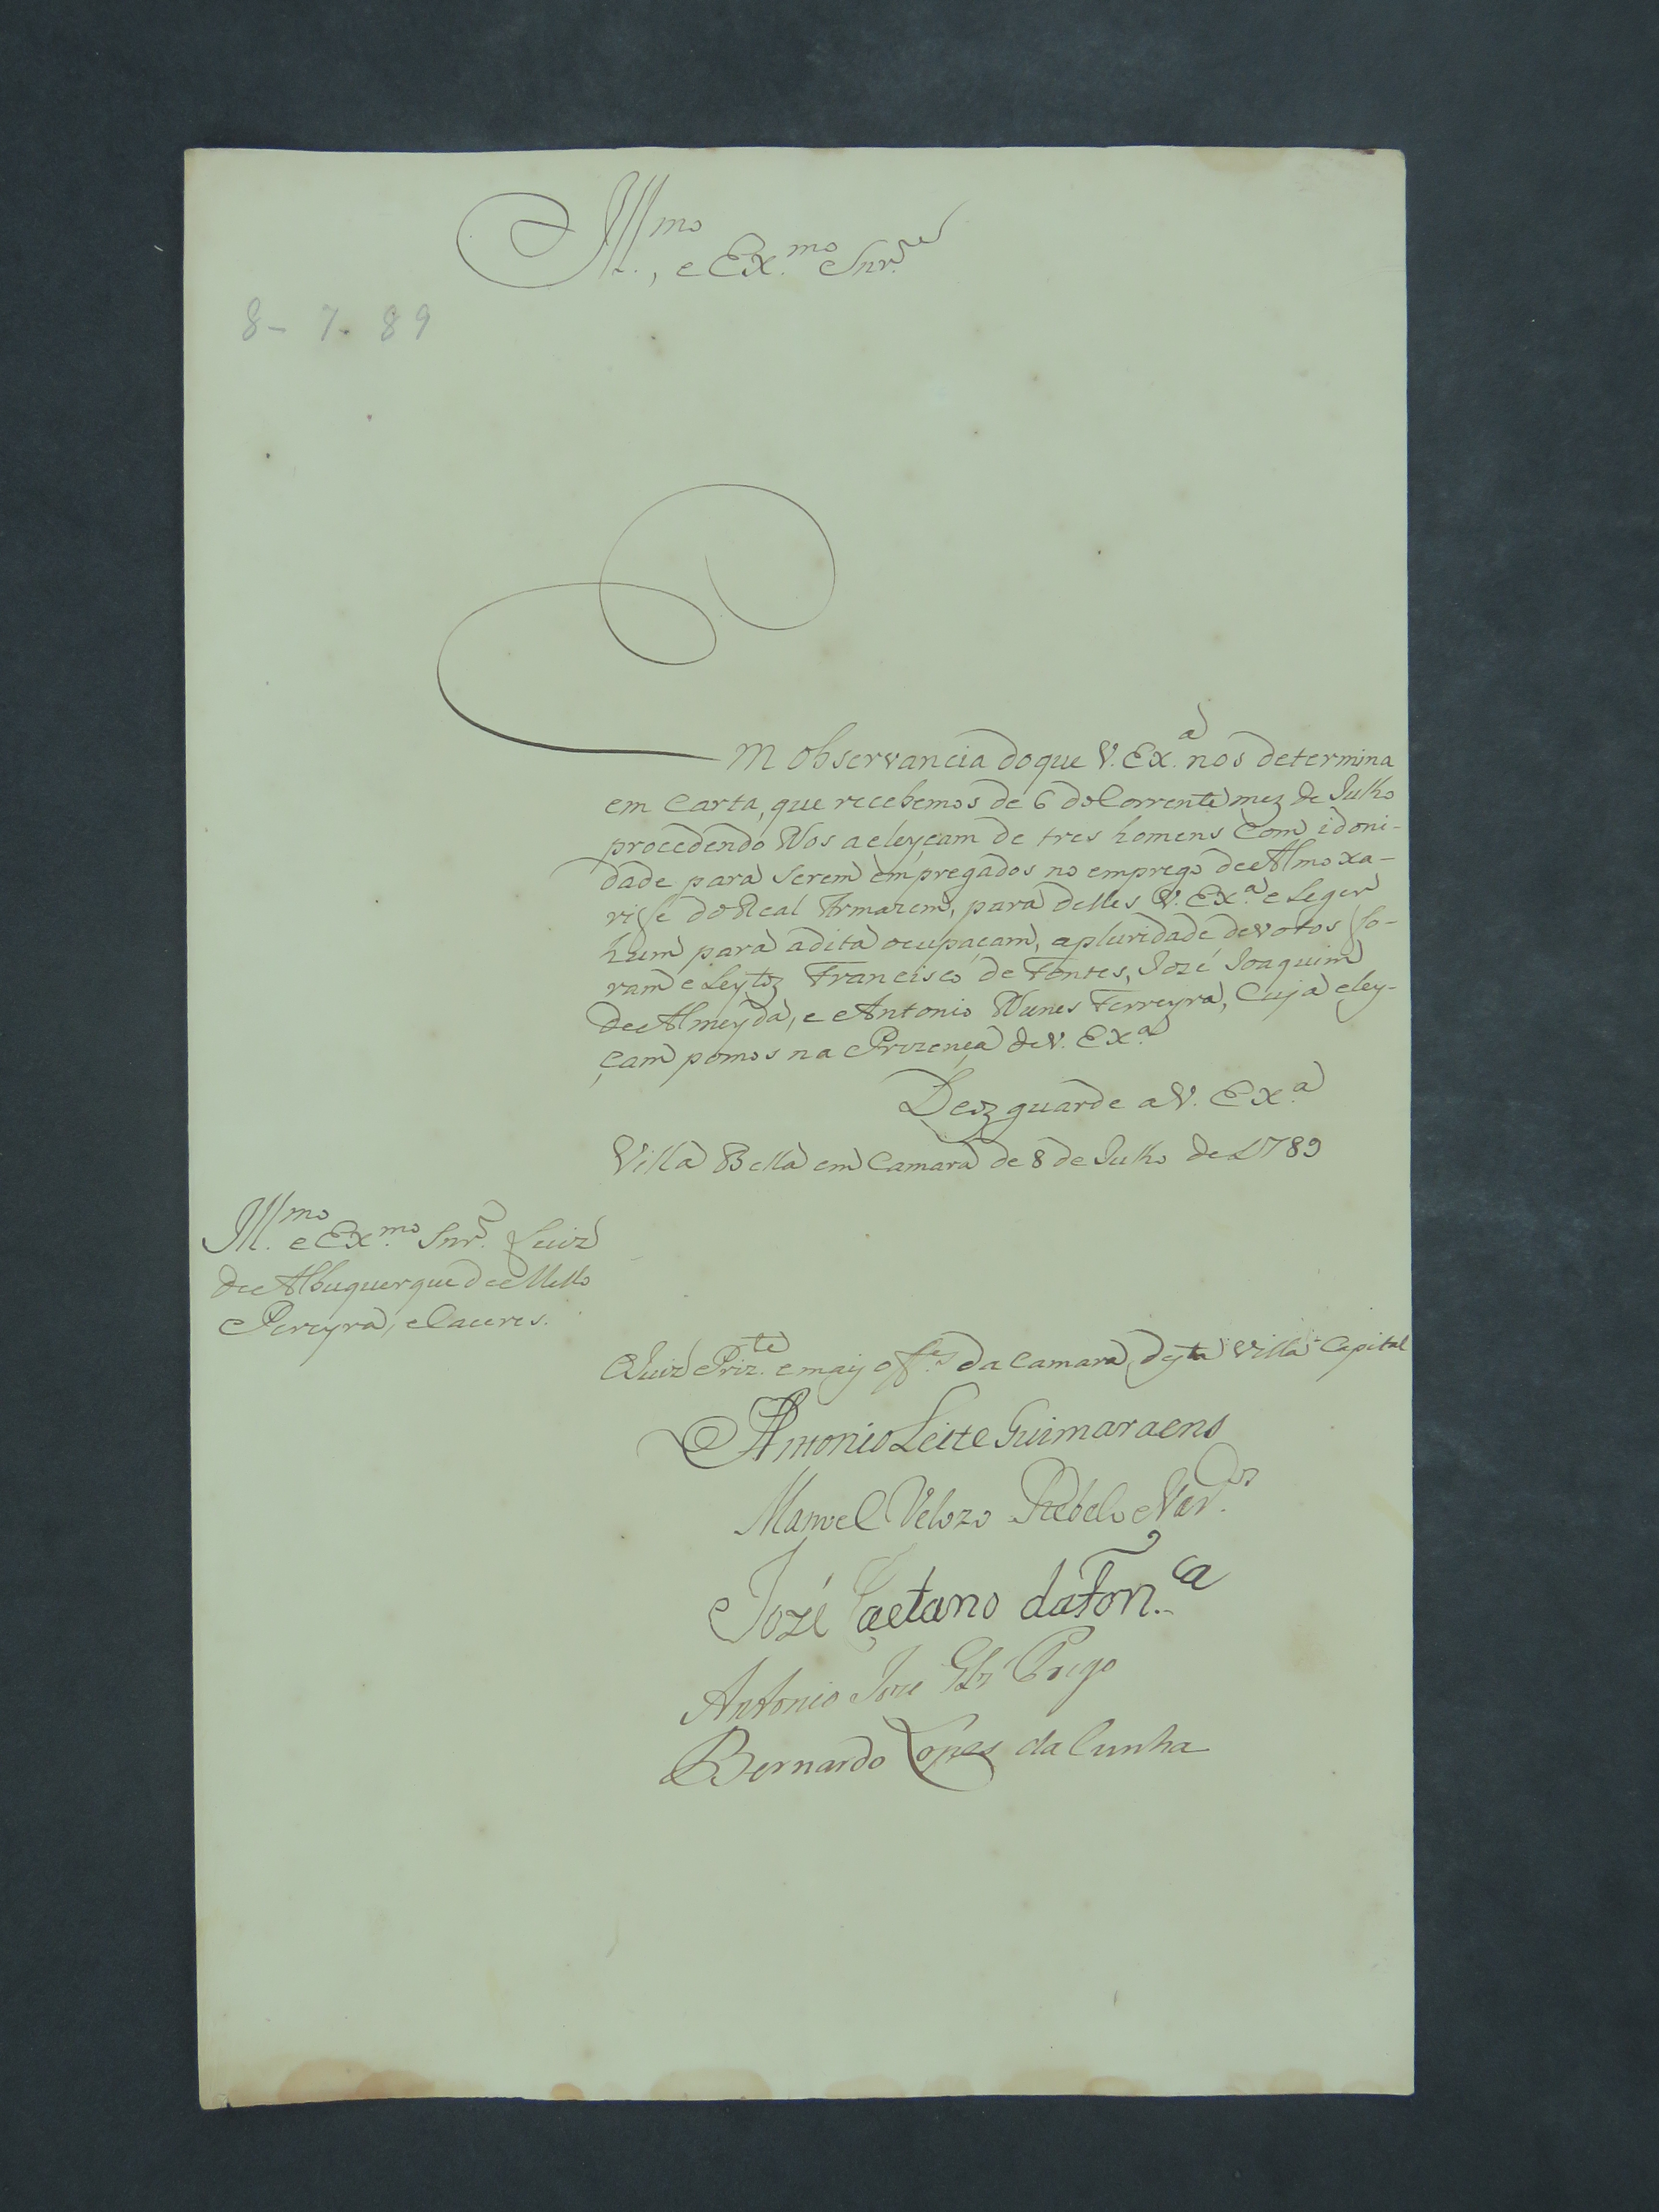 Ill.mo, e Ex.mo Snr.
8-7-89
Em observancia doque V. Ex.a nos determina
em Carta, que recebemos de 6 do Corrente mez de Julho
procedendo Nos a eleyçam de tres homens Com idoni-
dade para Serem empregados no emprego de Almoxa-
rife do Real Armazem, para delles V. Ex.a e Leger
hum para adita ocupaçam, apluridade devotos fo-
ram e Leytoz Francisco de Fontes, Jozé Joaquim
de Almeyda, e Antonio Nunes Ferreyra, Cuja eley-
çam pomos na Prezença de V. Ex.a
Deoz guarde a V. Ex.a
Villa Bella em Camara de 8 de Julho de 1789
Ill.mo e Ex.mo Snr. Luiz
de Albuquerque de Mello
Pereyra, e Caceres.
O Juiz Prez.te e mais off.es da Camara desta Villa Capital
Antonio Leite Guimaraens
Manoel Velozo Rebelo e Vas.los
Jozé Caetano da Fon.ca
Antonio Joze Glz Prego
Bernardo Lopes da Cunha